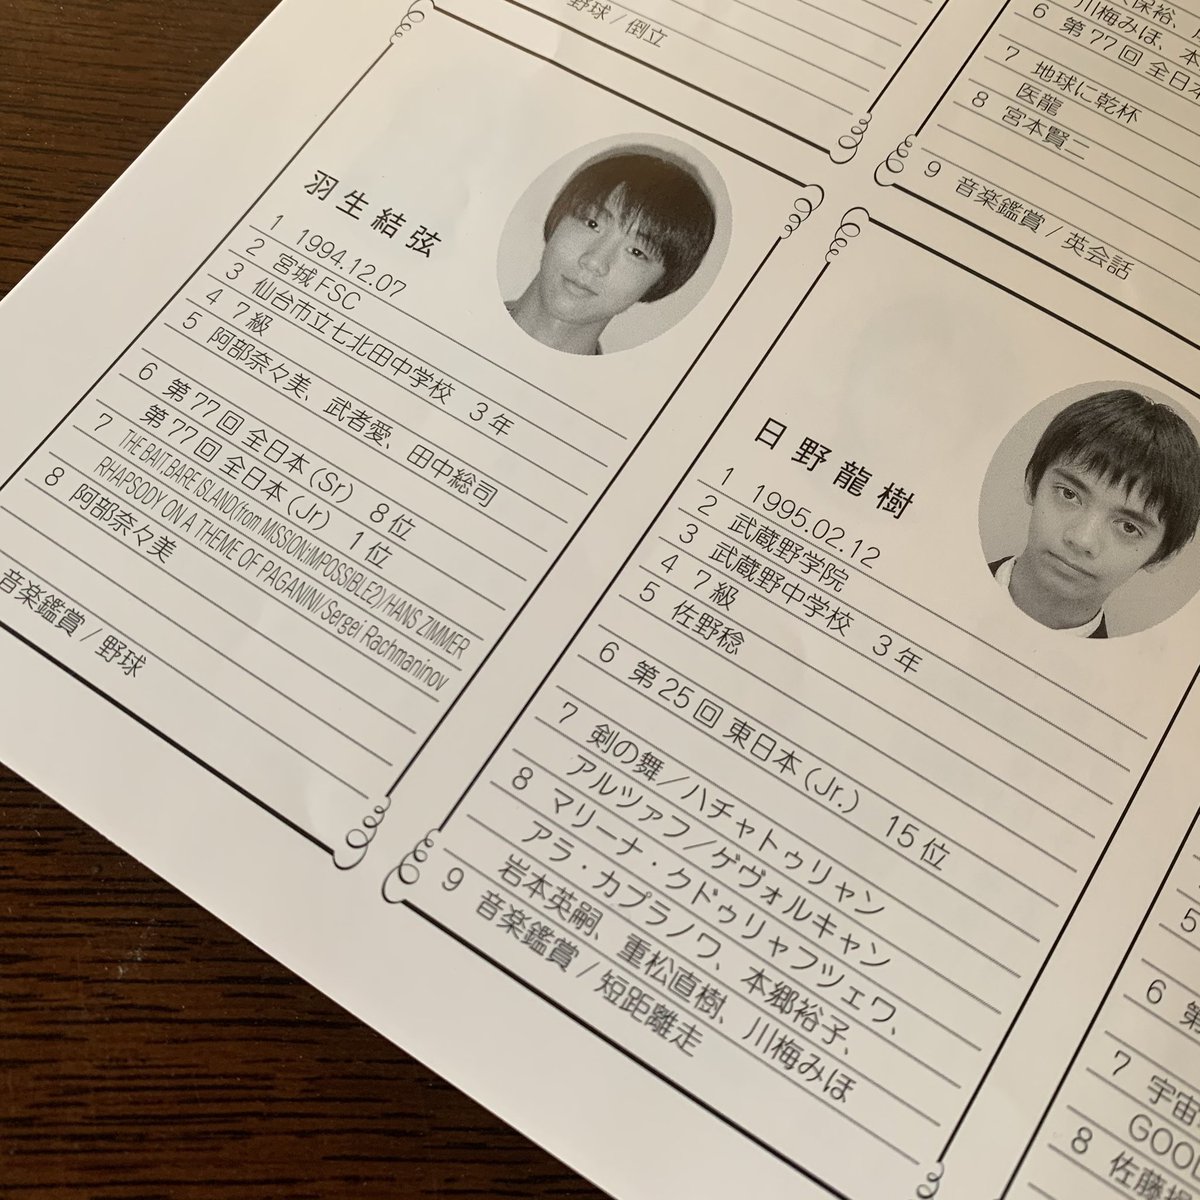 野球 / 倒立
羽生結弦
1 1994.12.07
2 宮城FSC
3 仙台市立七北田中学校 3年
4 7級
5 阿部奈々美、武者愛、田中総司
6 第77回 全日本(Sr) 8位
第77回 全日本(Jr) 1位
7 THE BAIT,BARE ISLAND(from MISSION:IMPOSSIBLE2)/HANS ZIMMER
RHAPSODY ON A THEME OF PAGANINI/Sergei Rachmaninov
8 阿部奈々美
音楽鑑賞 / 野球
川梅みほ、本
6 第77回 全日本
7 地球に乾杯
医龍
8 宮本賢二
9 音楽鑑賞 / 英会話
日野龍樹
1 1995.02.12
2 武蔵野学院
3 武蔵野中学校 3年
4 7級
5 佐野稔
6 第25回 東日本(Jr.) 15位
7 剣の舞/ハチャトゥリャン
アルツァフ/ゲヴォルキャン
8 マリーナ・クドゥリャフツェワ、
アラ・カプラノワ、本郷裕子、
岩本英嗣、重松直樹、川梅みほ
9 音楽鑑賞 / 短距離走
5
6 第
7 宇宙
GOO
8 佐藤